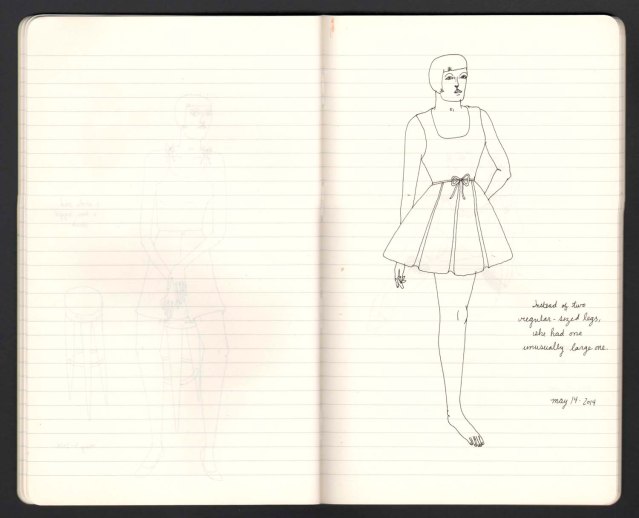 Instead of two
regular-sized legs,
she had one
unusually large one.
may 14 · 2014